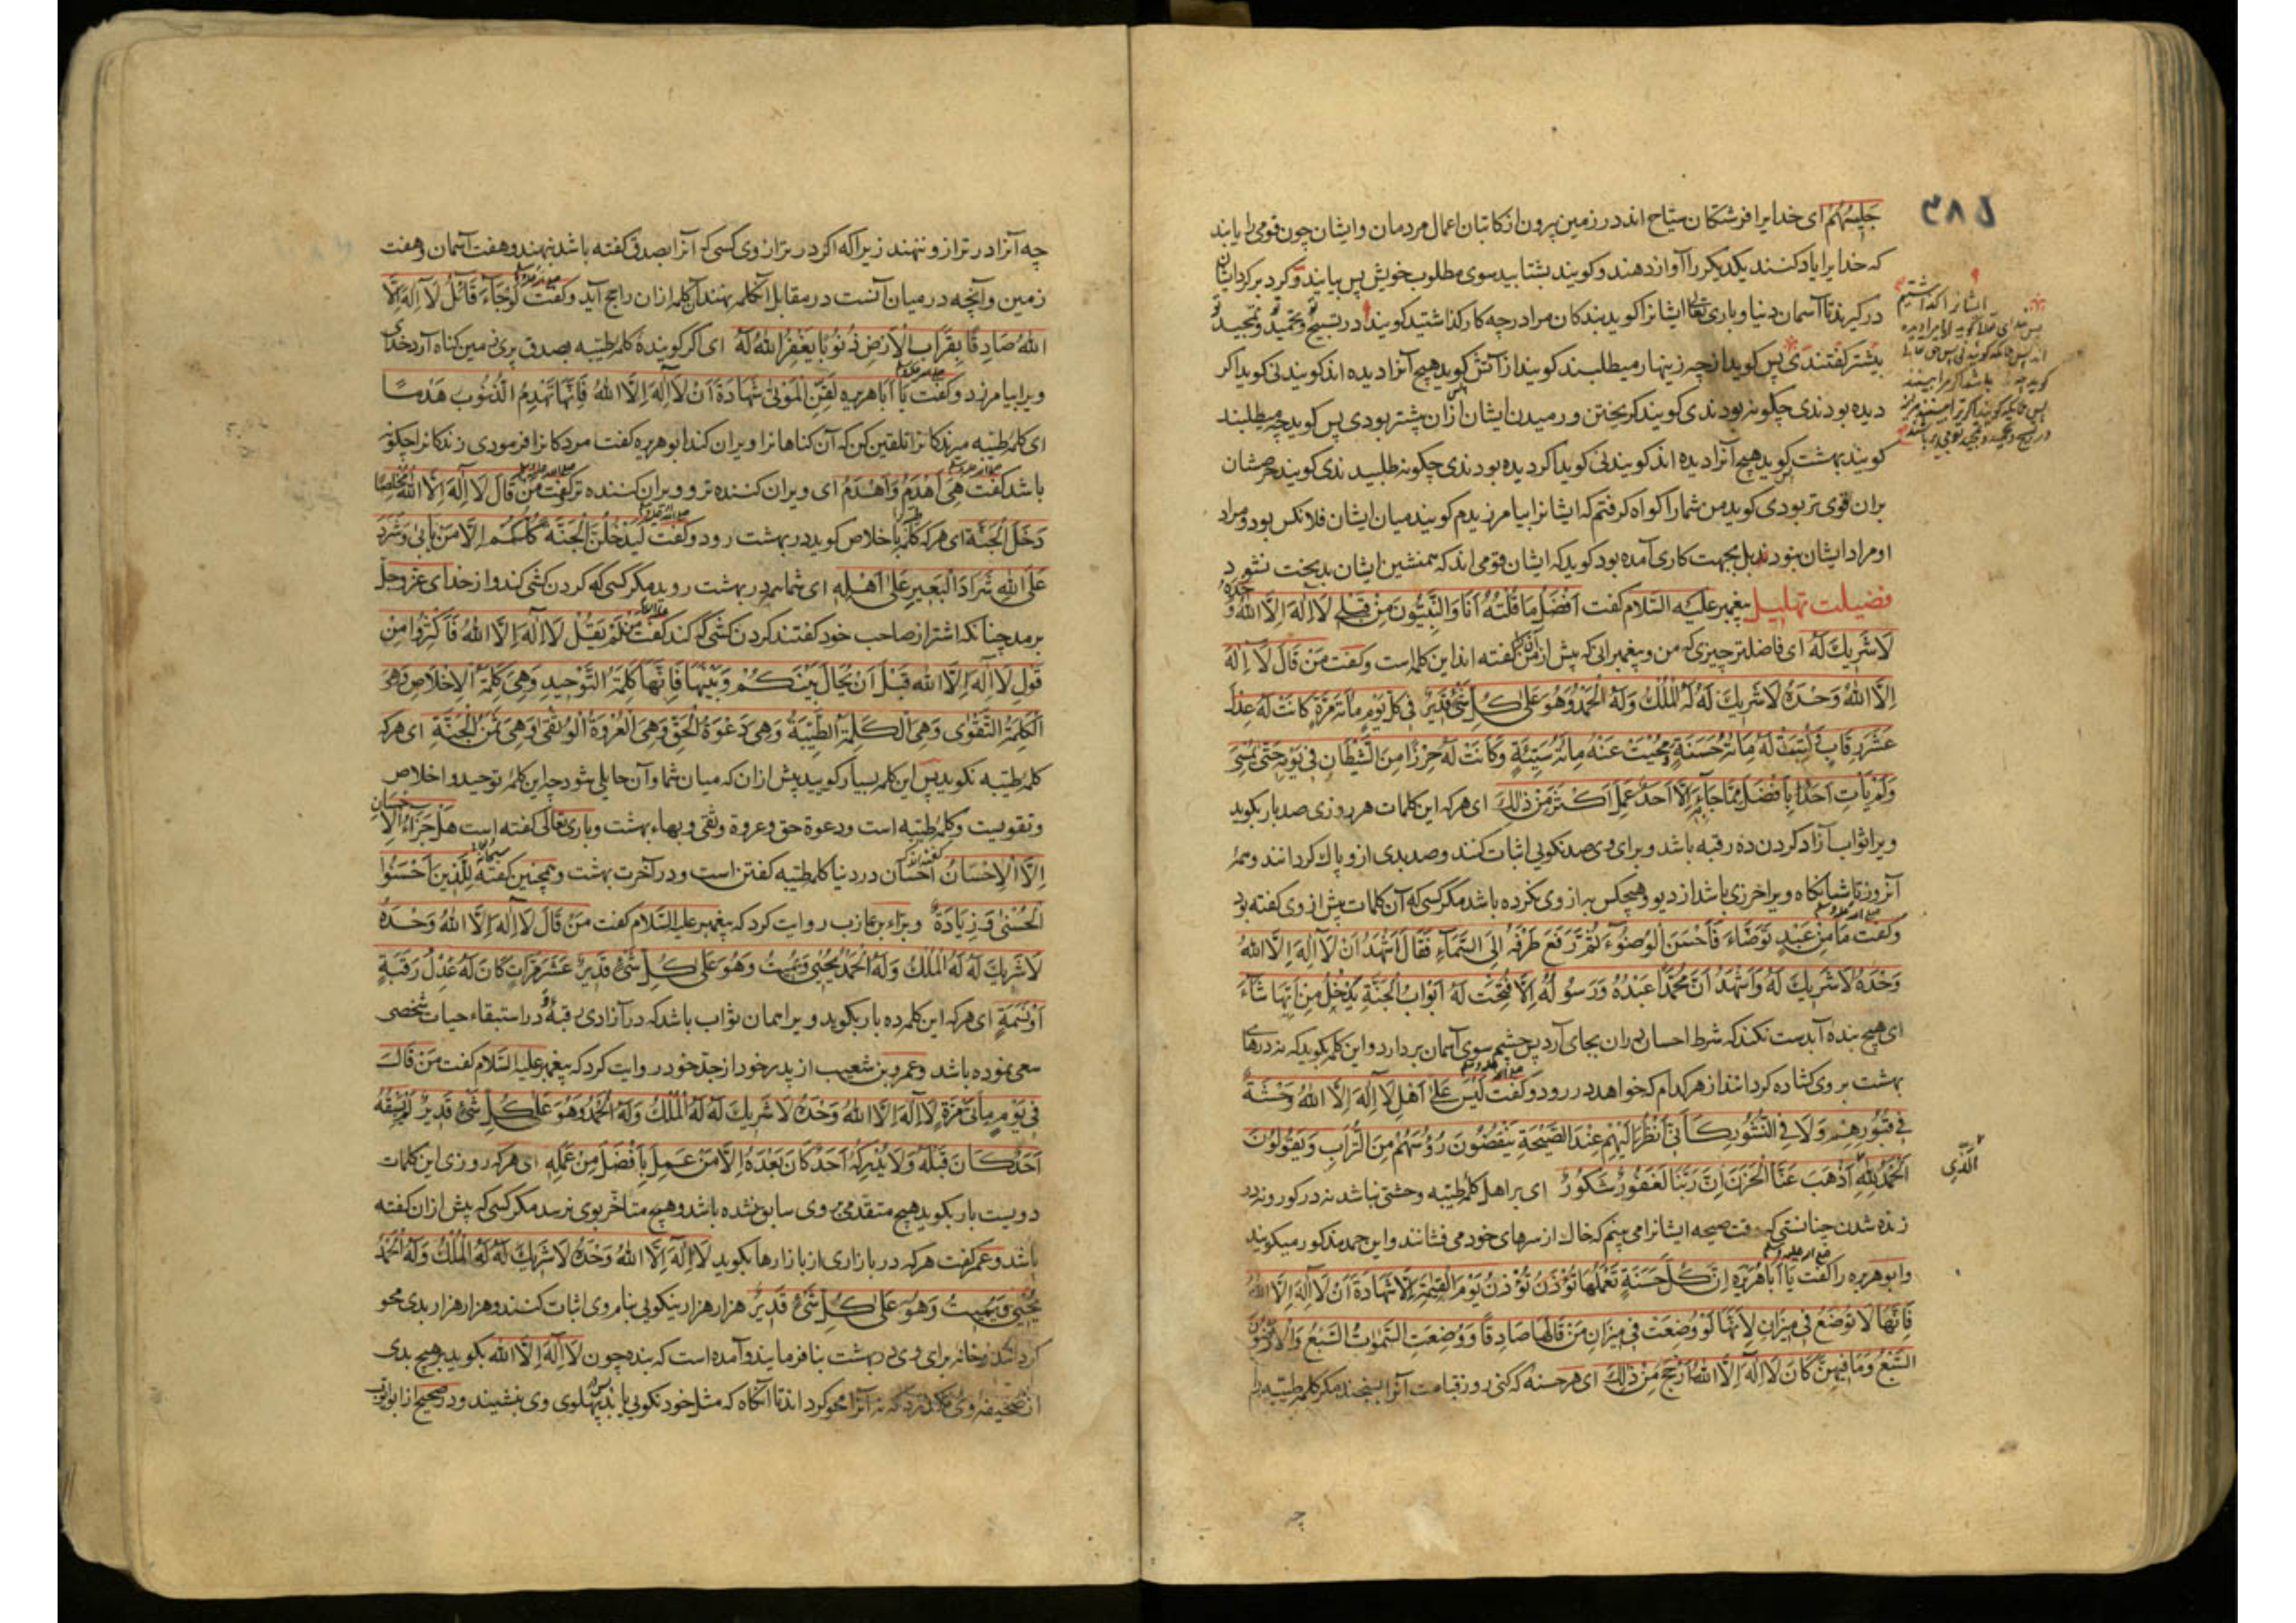 ۳۸۵
جَلِيسُهُمْ ای خدایرا فرشتکان سیّاح اند در زمین بیرون از کاتبان اعمال مردمان و ایشان چون قومی را یابند
که خدایرا یاد کنند یکدیکر را آواز دهند و کویند بشتابید سوی مطلوب خویش پس بیایند و کرد بر کرد ایشان
در کیرند تا آسمان دنیا و باری تعالی ایشانرا کوید بندکان مرا در چه کار کذاشتید کویند در تسبیح و تحمید و تمجید تو
پس کوید از چه زینهار میطلبند کویند از آتش کوید هیچ آنرا دیده اند کویند نی کوید اکر
دیده بودندی چکونه بودندی کویند کریختن و رمیدن ایشان ازان بیشتر بودی پس کوید چه میطلبند
کویند بهشت کوید هیچ آنرا دیده اند کویند نی کوید اکر دیده بودندی چکونه طلبیدندی کویند حرصشان
بران قوی تر بودی کوید من شما را کواه کرفتم که ایشانرا بیامرزیدم کویند میان ایشان فلانکس بود و مراد
او مراد ایشان نبود بل بجهت کاری آمده بود کوید که ایشان قومی اند که همنشین ایشان بدبخت نشود
فضیلت تهلیل پیغمبر علیه السّلام کفت اَفْضَلُ مَا قُلْتُهُ اَنَا وَالنَّبِيُّونَ مِنْ قَبْلِي لَا اِلٰهَ اِلَّا اللّٰهُ وَحْدَهُ
لَا شَرِيكَ لَهُ ای فاضلتر چیزی که من و پیغمبرانی که پیش از من کفته اند این کلمه است و کفت مَنْ قَالَ لَا اِلٰهَ
اِلَّا اللّٰهُ وَحْدَهُ لَا شَرِيكَ لَهُ لَهُ الْمُلْكُ وَلَهُ الْحَمْدُ وَهُوَ عَلٰى كُلِّ شَيْءٍ قَدِيرٌ فِي كُلِّ يَوْمٍ مِائَةَ مَرَّةٍ كَانَتْ لَهُ عِدْلَ
عَشْرِ رِقَابٍ وَكُتِبَتْ لَهُ مِائَةُ حَسَنَةٍ وَمُحِيَتْ عَنْهُ مِائَةُ سَيِّئَةٍ وَكَانَتْ لَهُ حِرْزًا مِنَ الشَّيْطَانِ فِي يَوْمِهِ حَتّٰى يُمْسِيَ
وَلَمْ يَأْتِ اَحَدٌ بِاَفْضَلَ مِمَّا جَاءَ بِهِ اِلَّا اَحَدٌ عَمِلَ اَكْثَرَ مِنْ ذٰلِكَ ای هر که این کلمات هر روزی صد بار بکوید
ویرا ثواب آزاد کردن ده رقبه باشد و برای وی صد نکویی اثبات کنند و صد بدی ازو پاک کردانند و همه
آنروز تا شبانکاه ویرا حرزی باشد از دیو و هیچکس به از وی نکرده باشد مکر کسی که آن کلمات بیش از وی کفته بود
وکفت مَا مِنْ عَبْدٍ تَوَضَّاءَ فَاَحْسَنَ الْوُضُوءَ ثُمَّ رَفَعَ طَرْفَهُ اِلَى السَّمَاءِ فَقَالَ اَشْهَدُ اَنْ لَا اِلٰهَ اِلَّا اللّٰهُ
وَحْدَهُ لَا شَرِيكَ لَهُ وَاَشْهَدُ اَنَّ مُحَمَّدًا عَبْدُهُ وَرَسُولُهُ اِلَّا فُتِحَتْ لَهُ اَبْوَابُ الْجَنَّةِ يَدْخُلُ مِنْ اَيِّهَا شَاءَ
ای هیچ بنده آبدست نکند که شرط احسان دران بجای آرد پس چشم سوی آسمان بردارد و این کلمه بکوید که نه درهای
بهشت بر وی کشاده کردانند از هر کدام که خواهد در رود و کفت لَيْسَ عَلٰى اَهْلِ لَا اِلٰهَ اِلَّا اللّٰهُ وَحْشَةٌ
فِي قُبُورِهِمْ وَلَا فِي النُّشُورِ كَاَنِّي اَنْظُرُ اِلَيْهِمْ عِنْدَ الصَّيْحَةِ يَنْفُضُونَ رُؤُسَهُمْ مِنَ التُّرَابِ وَيَقُولُونَ
اَلْحَمْدُ لِلّٰهِ اَذْهَبَ عَنَّا الْحَزَنَ اِنَّ رَبَّنَا لَغَفُورٌ شَكُورٌ ای بر اهل کلمه طیّبه وحشتی نباشد نه در کور و نه در
الَّذِي
زنده شدن چنانستی که وقت صیحه ایشانرا می بینم که خاک از سرهای خود می فشانند و این حمد مذکور میکویند
و ابوهریره را کفت يَا اَبَا هُرَيْرَةَ اِنَّ كُلَّ حَسَنَةٍ تَعْمَلُهَا تُوْزَنُ يَوْمَ الْقِيٰمَةِ اِلَّا شَهَادَةَ اَنْ لَا اِلٰهَ اِلَّا اللّٰهُ
فَاِنَّهَا لَا تُوضَعُ فِي مِيزَانٍ لِاَنَّهَا لَوْ وُضِعَتْ فِي مِيزَانِ مَنْ قَالَهَا صَادِقًا وَوُضِعَتِ السَّمٰوَاتُ السَّبْعُ وَالْاَرَضُونَ
السَّبْعُ وَمَا فِيهِنَّ كَانَ لَا اِلٰهَ اِلَّا اللّٰهُ اَرْجَحَ مِنْ ذٰلِكَ ای هر حسنه که کنی روز قیامت آنرا بسنجند مکر کلمه طیّبه را
چه
چه آنرا در ترازو ننهند زیرا که اکر در ترازوی کسی که آنرا بصدق کفته باشد بنهند و هفت آسمان و هفت
زمین و آنچه در میان آنست در مقابل آن کلمه بنهند آن کلمه ازان راجح آید و کفت لَوْ جَاءَ قَائِلُ لَا اِلٰهَ اِلَّا
اللّٰهُ صَادِقًا بِقُرَابِ الْاَرْضِ ذُنُوبًا يَغْفِرُ اللّٰهُ لَهُ ای اکر کوینده کلمه طیّبه بصدق پری زمین کناه آرد خدای
ویرا بیامرزد و کفت يَا اَبَا هُرَيْرَةَ لَقِّنِ الْمَوْتٰى شَهَادَةَ اَنْ لَا اِلٰهَ اِلَّا اللّٰهُ فَاِنَّهَا تَهْدِمُ الذُّنُوبَ هَدْمًا
ای کلمه طیّبه مردکانرا تلقین کن که آن کناهانرا ویران کند ابوهریره کفت مردکانرا فرمودی زندکانرا چکونه
باشد کفت هِيَ اَهْدَمُ وَاَهْدَمُ ای ویران کننده تر و ویران کننده تر و کفت مَنْ قَالَ لَا اِلٰهَ اِلَّا اللّٰهُ مُخْلِصًا
دَخَلَ الْجَنَّةَ ای هر که کلمه باخلاص کوید در بهشت رود و کفت لَيَدْخُلَنَّ الْجَنَّةَ كُلُّكُمْ اِلَّا مَنْ يَاْبٰى وَشَرَدَ
عَلَى اللّٰهِ شِرَادَ الْبَعِيرِ عَلٰى اَهْلِهِ ای شما همه در بهشت روید مکر کسی که کردن کشی کند و از خدای عزّوجلّ
برمد چنانکه اشتر از صاحب خود کفتند کردن کشی که کند کفت مَنْ لَمْ يَقُلْ لَا اِلٰهَ اِلَّا اللّٰهُ فَاَكْثِرُوا مِنْ
قَوْلِ لَا اِلٰهَ اِلَّا اللّٰهُ قَبْلَ اَنْ يُحَالَ بَيْنَكُمْ وَبَيْنَهَا فَاِنَّهَا كَلِمَةُ التَّوْحِيدِ وَهِيَ كَلِمَةُ الْاِخْلَاصِ وَهِيَ
الْكَلِمَةُ التَّقْوٰى وَهِيَ الْكَلِمَةُ الطَّيِّبَةُ وَهِيَ دَعْوَةُ الْحَقِّ وَهِيَ الْعُرْوَةُ الْوُثْقٰى وَهِيَ ثَمَنُ الْجَنَّةِ ای هر که
کلمه طیّبه نکوید پس این کلمه بسیار کویید پیش ازان که میان شما و آن حایلی شود چه این کلمه توحید و اخلاص
و تقویست و کلمه طیّبه است و دعوة حق و عروة وثقی و بهاء بهشت و باری تعالی کفته است هَلْ جَزَاءُ الْاِحْسَانِ
اِلَّا الْاِحْسَانُ احسان در دنیا کلمه طیّبه کفتن است و در آخرت بهشت و همچنین کفته لِلَّذِينَ اَحْسَنُوا
الْحُسْنٰى وَزِيَادَةٌ و براء بن عازب روایت کرد که پیغمبر علیه السّلام کفت مَنْ قَالَ لَا اِلٰهَ اِلَّا اللّٰهُ وَحْدَهُ
لَا شَرِيكَ لَهُ لَهُ الْمُلْكُ وَلَهُ الْحَمْدُ يُحْيِي وَيُمِيتُ وَهُوَ عَلٰى كُلِّ شَيْءٍ قَدِيرٌ عَشْرَ مَرَّاتٍ كَانَ لَهُ عِدْلُ رَقَبَةٍ
اَوْ نَسَمَةٍ ای هر که این کلمه ده بار بکوید ویرا همان ثواب باشد که در آزادی رقبه و در استبقاء حیات شخصی
سعی نموده باشد و عمرو بن شعیب از پدر خود از جدّ خود روایت کرد که پیغمبر علیه السّلام کفت مَنْ قَالَ
فِي يَوْمٍ مِائَتَيْ مَرَّةٍ لَا اِلٰهَ اِلَّا اللّٰهُ وَحْدَهُ لَا شَرِيكَ لَهُ لَهُ الْمُلْكُ وَلَهُ الْحَمْدُ وَهُوَ عَلٰى كُلِّ شَيْءٍ قَدِيرٌ لَمْ يَسْبِقْهُ
اَحَدٌ كَانَ قَبْلَهُ وَلَا يُدْرِكُهُ اَحَدٌ كَانَ بَعْدَهُ اِلَّا مَنْ عَمِلَ بِاَفْضَلَ مِنْ عَمَلِهِ ای هر که روزی این کلمات
دویست بار بکوید هیچ متقدمی بر وی سابق نشده باشد و هیچ متاخر بوی نرسد مکر کسی که بیش ازان کفته
باشد و عمر کفت هر که در بازاری از بازارها بکوید لَا اِلٰهَ اِلَّا اللّٰهُ وَحْدَهُ لَا شَرِيكَ لَهُ لَهُ الْمُلْكُ وَلَهُ الْحَمْدُ
يُحْيِي وَيُمِيتُ وَهُوَ عَلٰى كُلِّ شَيْءٍ قَدِيرٌ هزار هزار نیکویی بنام وی اثبات کنند و هزار هزار بدی محو
کردانند و خانه برای وی در بهشت بنا فرمایند و آمده است که بنده چون لَا اِلٰهَ اِلَّا اللّٰهُ بکوید بر هیچ بدی
از صحیفه وی نکذرد که نه آنرا محو کرداند تا آنکاه که مثل خود نکویی یابد پس پهلوی وی بنشیند و در صحیح از ابو ایوب